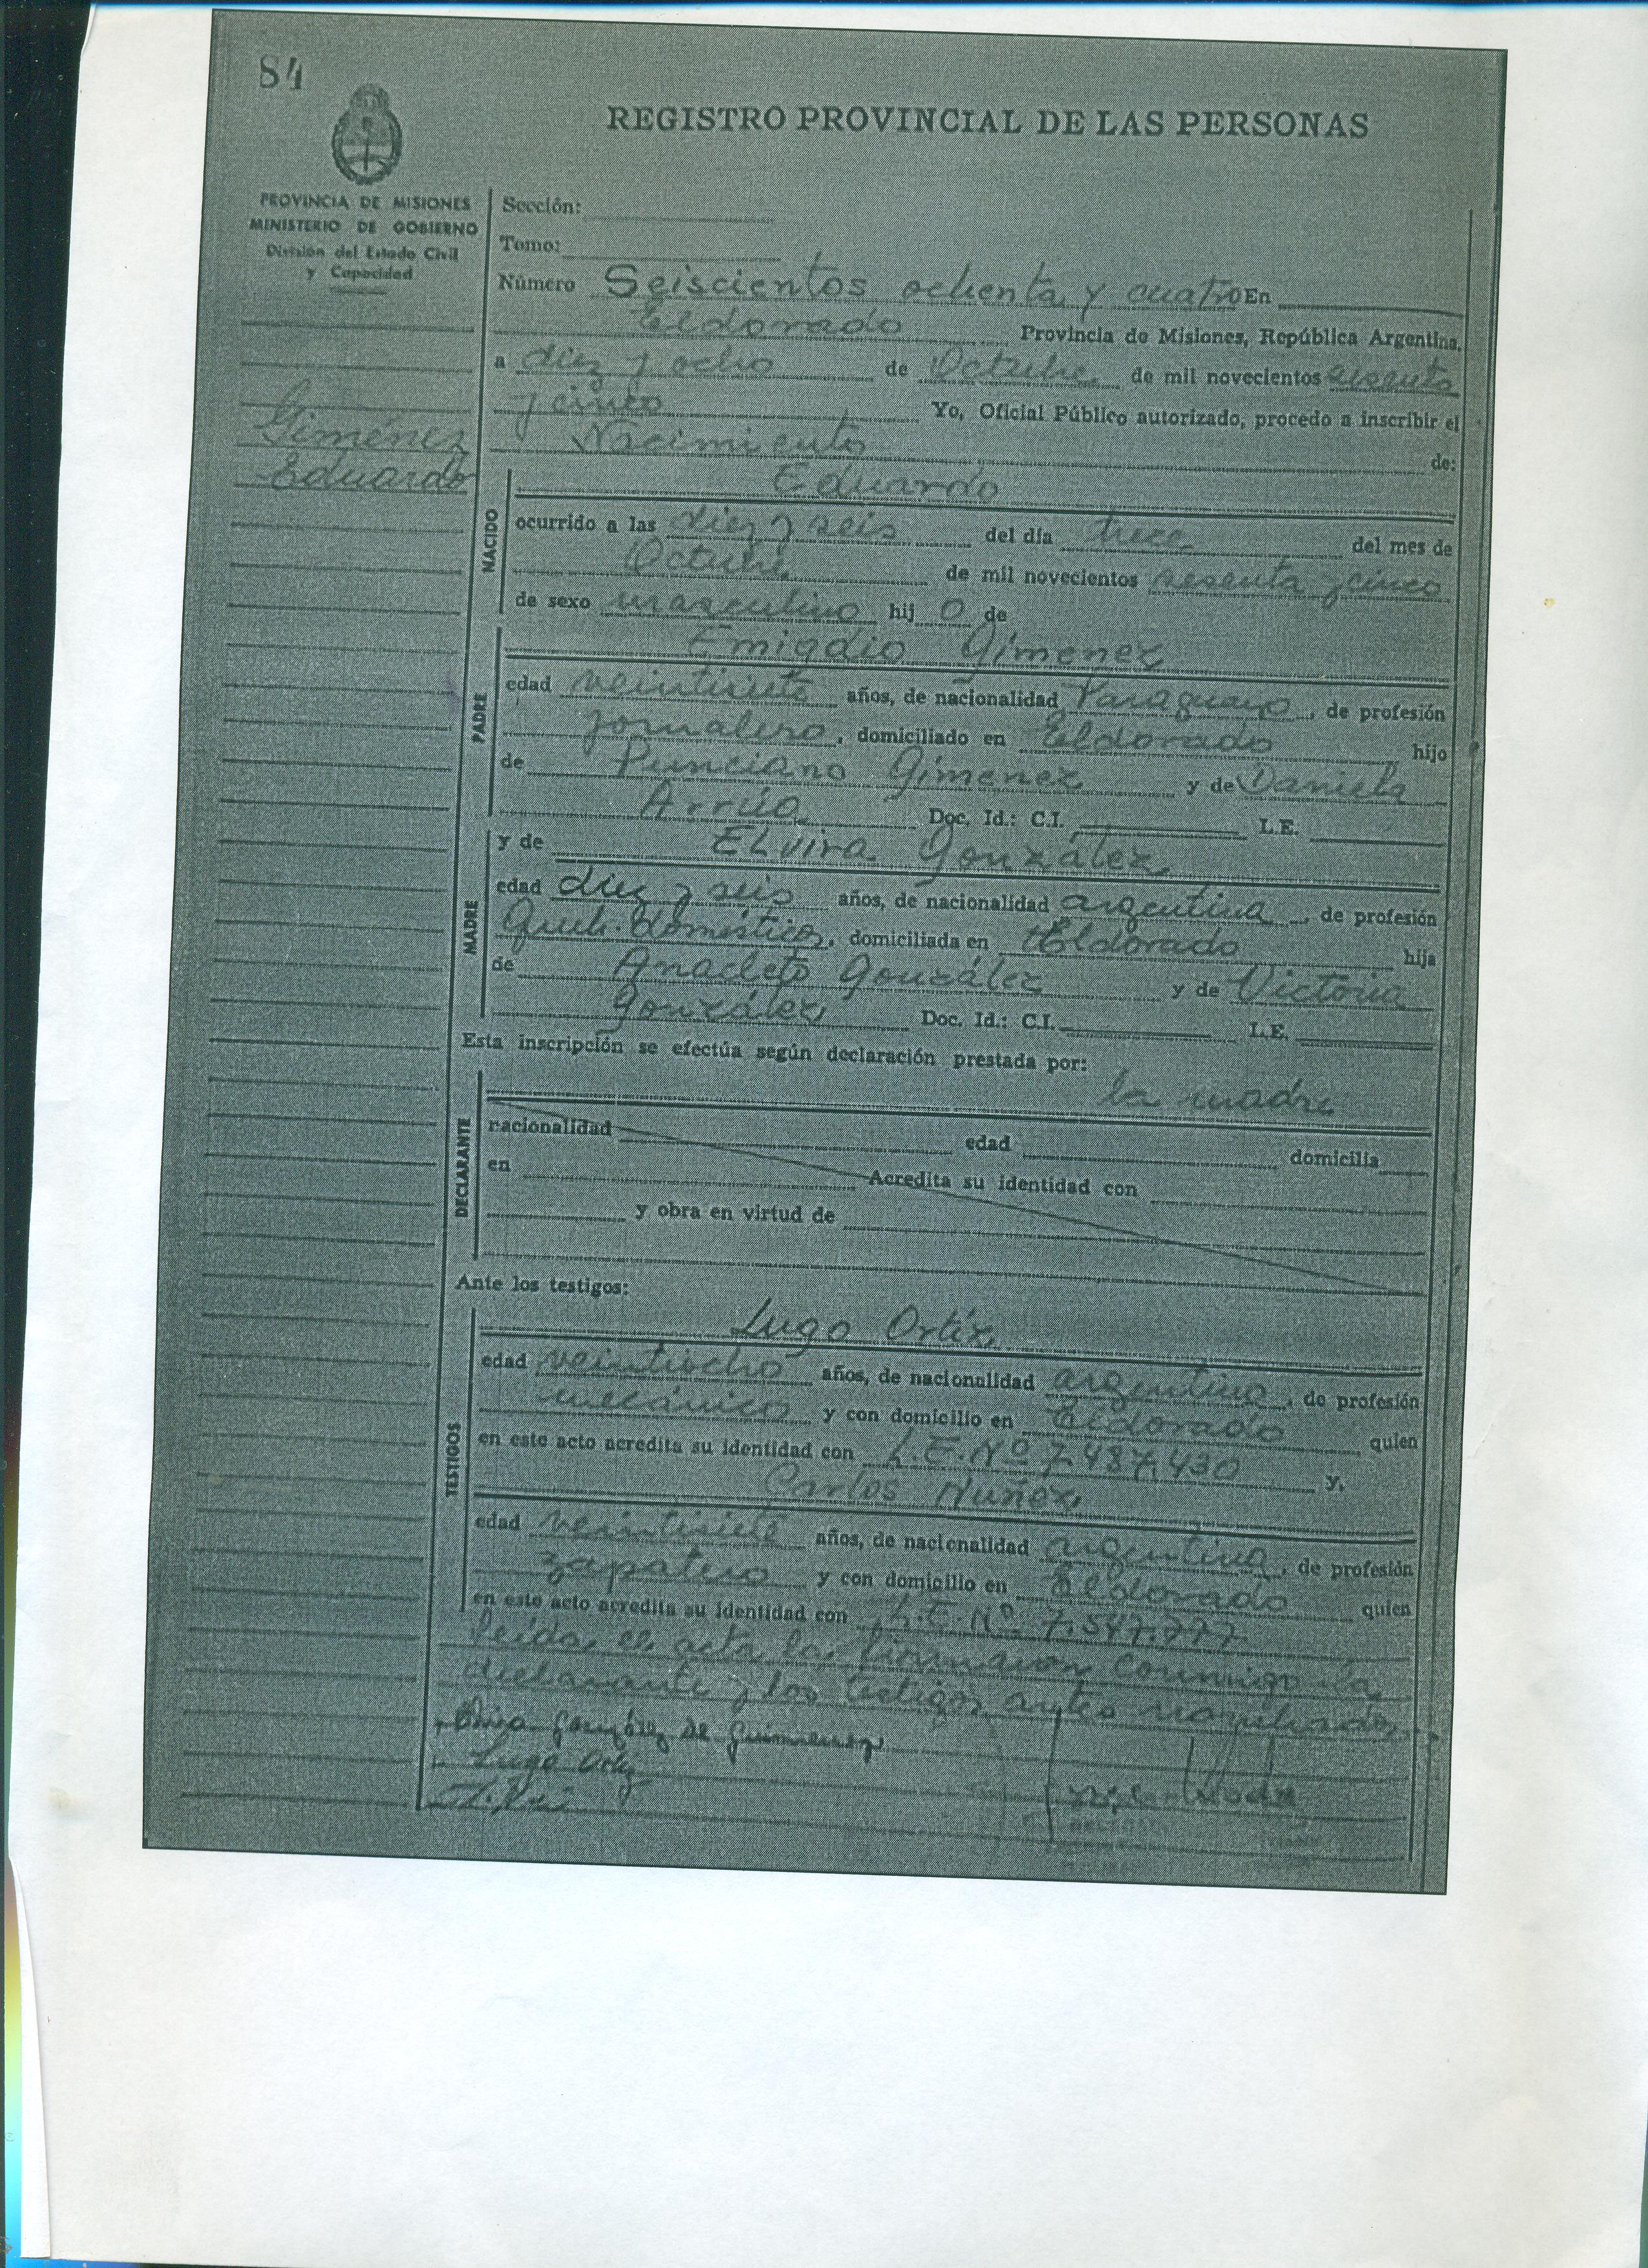 84
REGISTRO PROVINCIAL DE LAS PERSONAS
PROVINCIA DE MISIONES
MINISTERIO DE GOBIERNO
División del Estado Civil
y Capacidad
Giménez
Eduardo
Sección:
Tomo:
Número Seiscientos ochenta y cuatro En
Eldorado Provincia de Misiones, República Argentina,
a diez y ocho de Octubre de mil novecientos sesenta
y cinco Yo, Oficial Público autorizado, procedo a inscribir el
Nacimiento de:
NACIDO
Eduardo
ocurrido a las diez y seis del día trece del mes de
Octubre de mil novecientos sesenta y cinco
de sexo masculino hij o de
PADRE
Emigdio Gimenez
edad veintisiete años, de nacionalidad Paraguayo, de profesión
jornalero, domiciliado en Eldorado hijo
de Punciano Gimenez y de Daniela
Arrúa Doc. Id.: C.I. L.E.
MADRE
y de ELvira González
edad diez y seis años, de nacionalidad argentina, de profesión
Queh. domésticos, domiciliada en Eldorado hija
de Anacleto González y de Victoria
González Doc. Id.: C.I. L.E.
Esta inscripción se efectúa según declaración prestada por:
la madre
DECLARANTE
nacionalidad edad domicilia
en Acredita su identidad con
y obra en virtud de
Ante los testigos:
TESTIGOS
Lugo Ortíz
edad veintiocho años, de nacionalidad argentina, de profesión
mecánico y con domicilio en Eldorado quien
en este acto acredita su identidad con L.E. Nº 7.487.430 y,
Carlos Nuñez
edad veintisiete años, de nacionalidad argentina, de profesión
zapatero y con domicilio en Eldorado quien
en este acto acredita su identidad con L.E. Nº 7.547.777
leída el acta la firmaron conmigo la
declarante y los testigos antes nombrados
González de
Lugo Ortiz